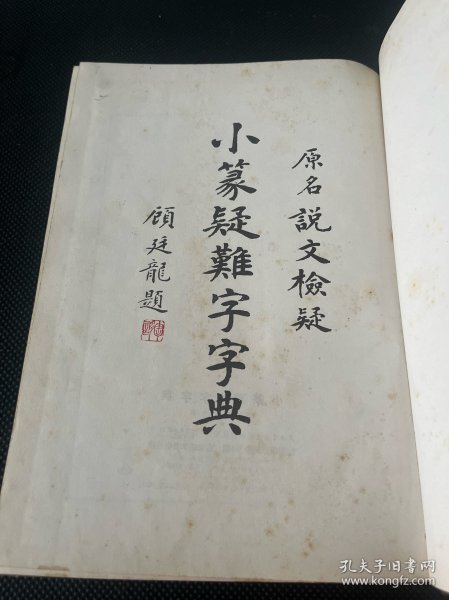 原名說文檢疑
小篆疑難字字典
顧廷龍題
孔夫子旧书网
www.kongfz.com